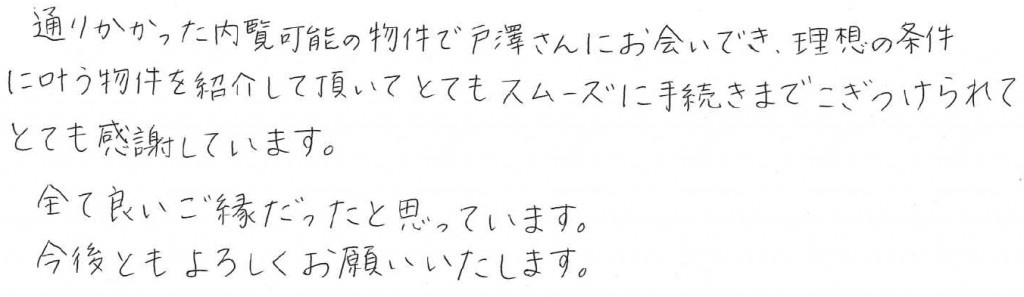 通りかかった内覧可能の物件で戸澤さんにお会いでき、理想の条件
に叶う物件を紹介して頂いてとてもスムーズに手続きまでこぎつけられて
とても感謝しています。
全て良いご縁だったと思っています。
今後ともよろしくお願いいたします。